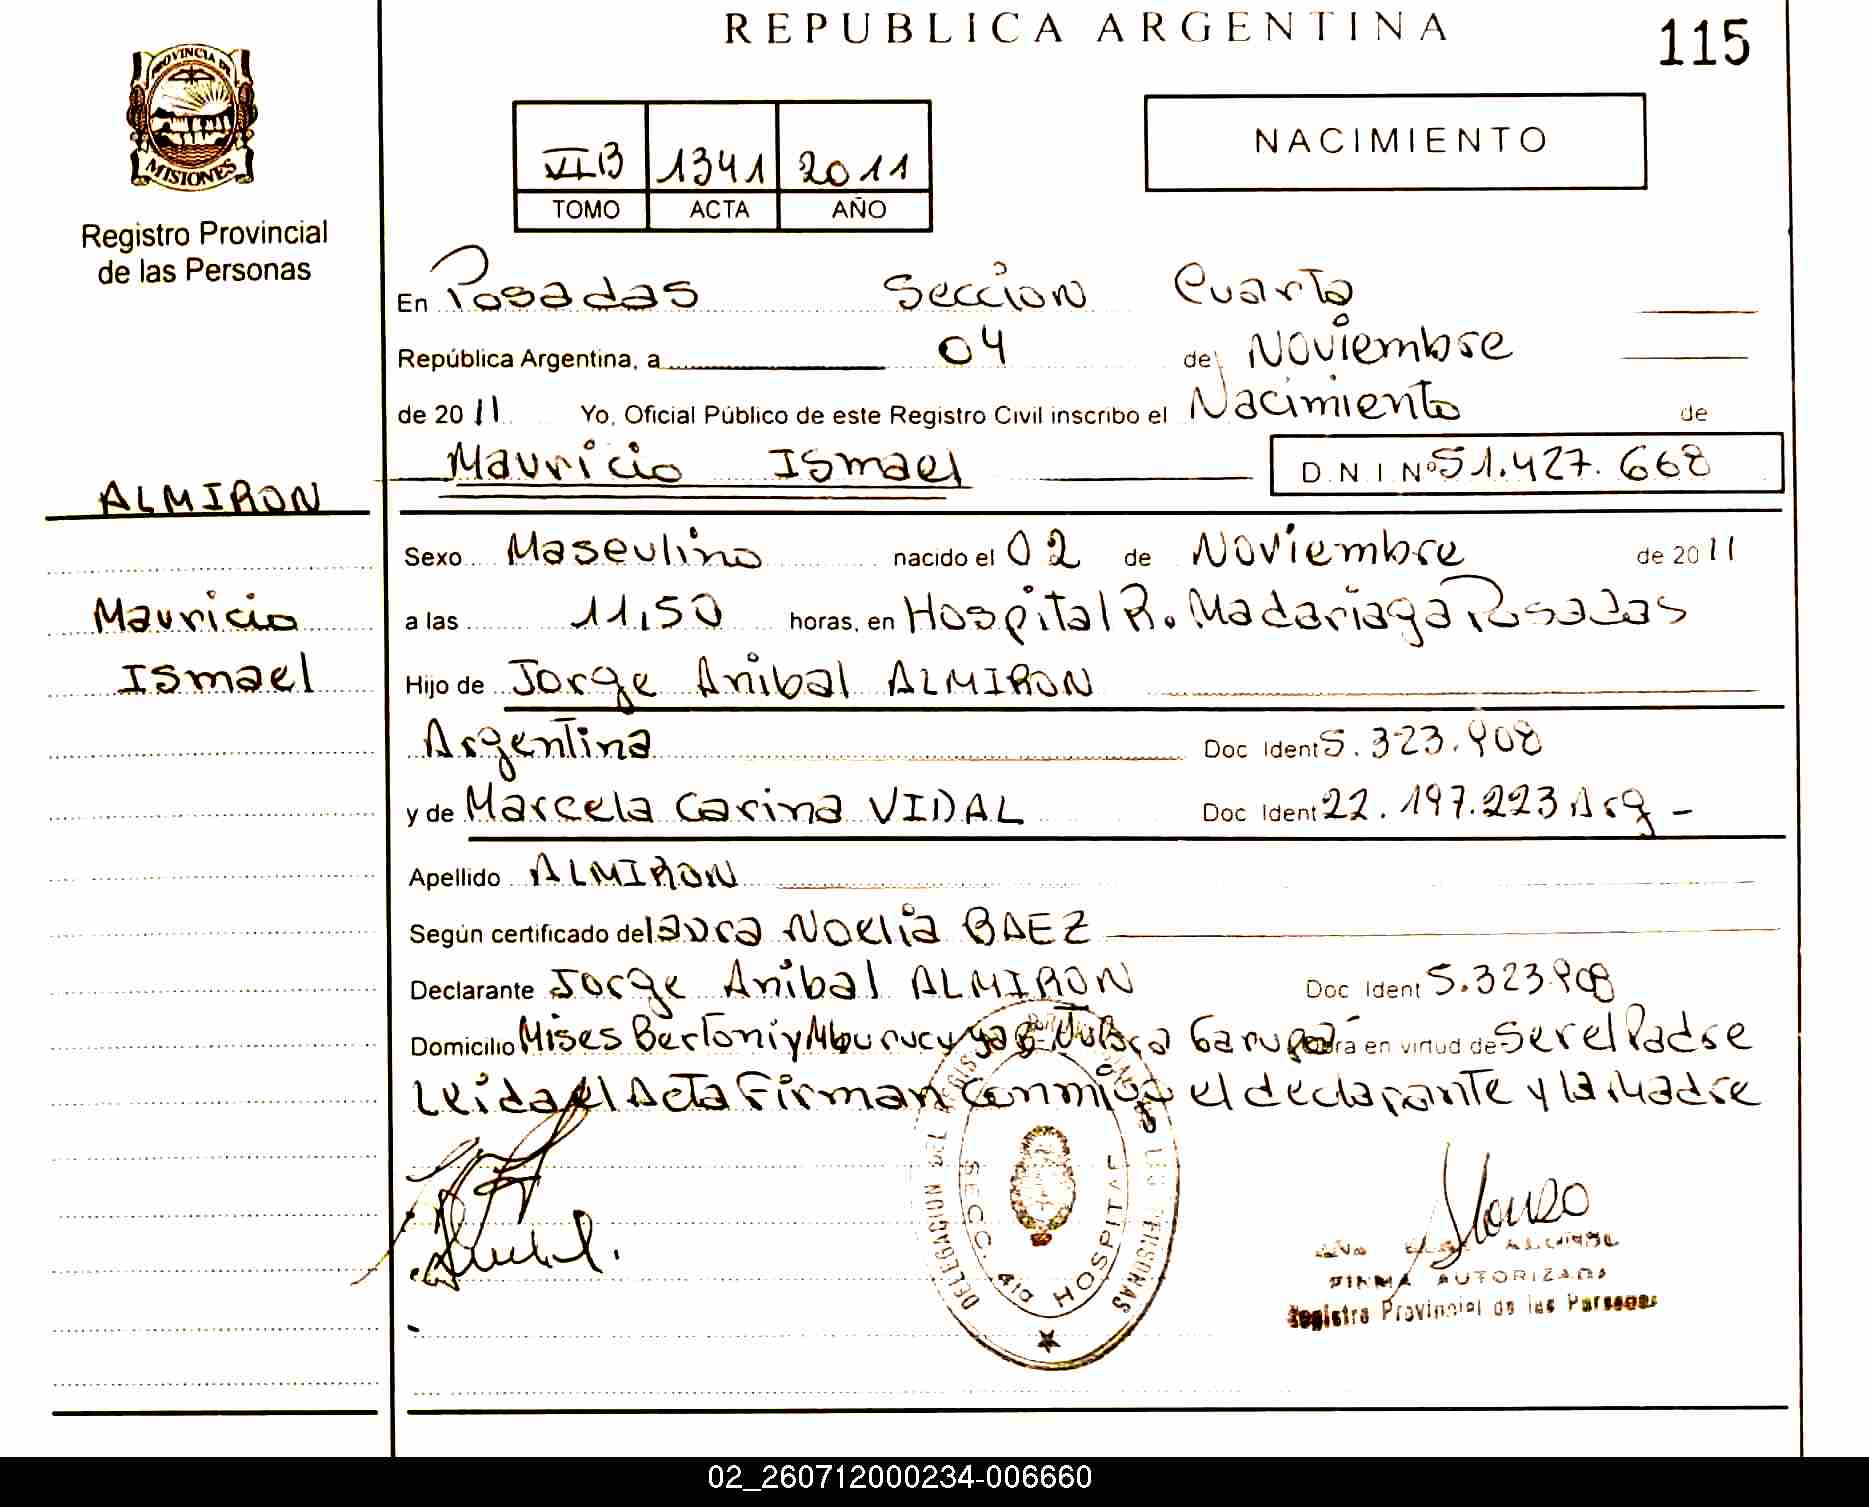 REPUBLICA ARGENTINA
115
PROVINCIA DE
MISIONES
Registro Provincial
de las Personas
VI B 1341 2011
TOMO ACTA AÑO
NACIMIENTO
En Posadas Sección Cuarta
República Argentina, a 04 de Noviembre
de 2011 Yo, Oficial Público de este Registro Civil inscribo el Nacimiento de
Mauricio Ismael D N I Nº 51.427.668
ALMIRON
Sexo Masculino nacido el 02 de Noviembre de 2011
Mauricio
a las 11,50 horas, en Hospital R. Madariaga Posadas
Ismael
Hijo de Jorge Anibal ALMIRON
Argentina Doc Ident 5.323.908
y de Marcela Carina VIDAL Doc Ident 22.197.223 Arg -
Apellido ALMIRON
Según certificado de Laura Noelia BAEZ
Declarante Jorge Anibal ALMIRON Doc Ident 5.323.908
Domicilio Mises Bertoni y Garupá en virtud de Ser el Padre
Leida el Acta Firman Conmigo el declarante y la Madre
DELEGACION DEL REGISTRO PROVINCIAL DE LAS PERSONAS
SECC. 4ta HOSPITAL
Alonso
FIRMA AUTORIZADA
Registro Provincial de las Personas
02_260712000234-006660